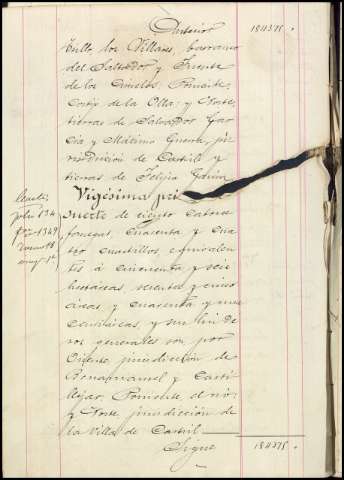 Anterior 184375.
Tullo los Villares, barranco
del Saltador y Fuente
de los Ciruelos, Poniente,
Cortijo de la Olla; y Norte,
tierras de Salvador Gar
cía y Máximo Guerra, ju
risdicción de Castril y
tierras de Felipa
Vigésima pri
suerte de ciento catorce
fanegas, cuarenta y cua
tro cuartillos, equivalen
tes á cincuenta y seis
hectáreas, sesenta y cinco
áreas y cuarenta y una
centiáreas, y sus linde
ros generales son, por
Oriente, jurisdicción de
Benamaurel y Castil
léjar, Poniente el rio,
y Norte, jurisdicción de
la Villa de Castril
Sigue 184375.